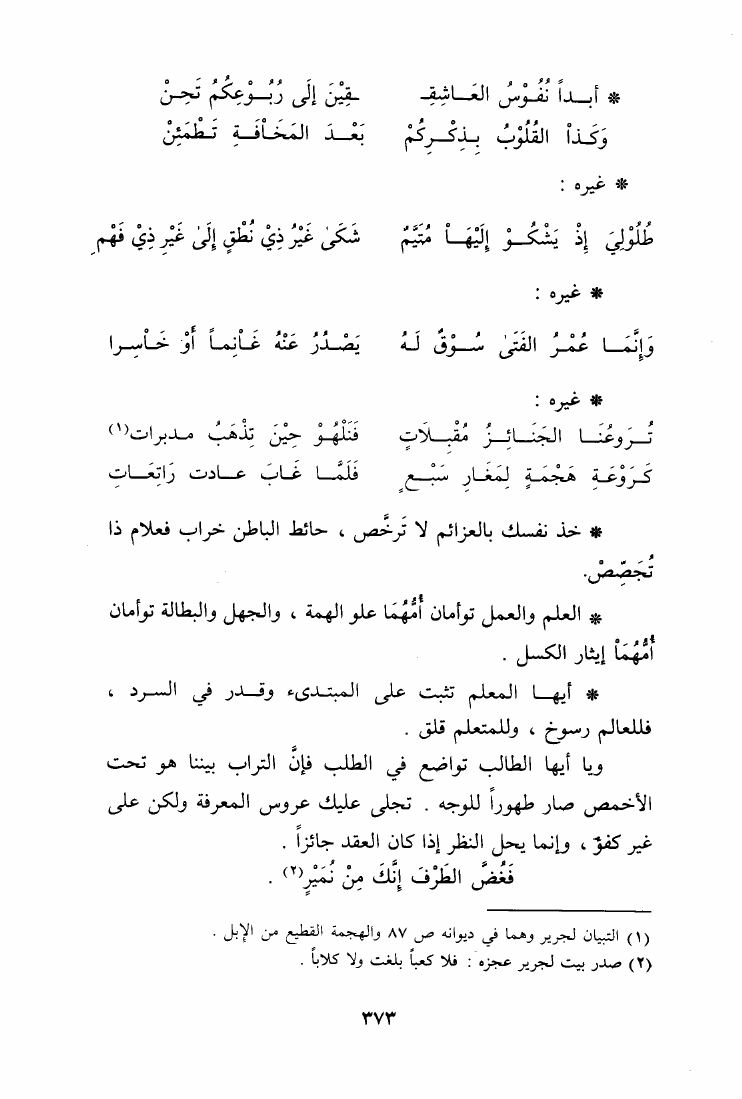 * أبـداً نُفُوْسُ العَـاشِقِـ ـقِيْنَ إِلَى رُبُـوْعِكُمْ تَحِـنْ
وَكَـذاْ القُلُوْبُ بِـذِكْـرِكُمْ بَعْـدَ المَخَـاْفَـةِ تَـطْمَئِنْ
* غيره :
طُلُوْلِيَ إِذْ يَشْكُـوْ إِلَيْهَـاْ مُتَيَّمٌ شَكَىٰ غَيْرُ ذِيْ نُطْقٍ إِلَىٰ غَيْرِ ذِيْ فَهْمِ
* غيره :
وَإِنَّمَـا عُمْـرُ الفَتَىٰ سُـوْقٌ لَـهُ يَصْـدُرُ عَنْهُ غَـاْنِمـاً أَوْ خَـاْسِـرا
* غيره :
تُـرَوعُنَـا الجَنَـائِـزُ مُقْبِـلَاتٍ فَنَلْهُـوْ حِيْنَ تِذْهَبُ مـدبرات(١)
كَـرَوْعَـةِ هَجْمَـةٍ لِمَغَـارِ سَبْـعٍ فَلَمَّـا غَـابَ عـادت رَاتِعَـاتِ
* خذ نفسك بالعزائم لا تَرخَّص ، حائط الباطن خراب فعلام ذا
تُجَصِّصْ.
* العلم والعمل توأمان أُمُّهُمَا علو الهمة ، والجهل والبطالة توأمان
أُمُّهُمَاْ إيثار الكسل .
* أيهـا المعلم تثبت على المبتدىء وقـدر في السـرد ،
فللعالم رسوخ ، وللمتعلم قلق .
ويا أيها الطالب تواضع في الطلب فإنَّ التراب بيننا هو تحت
الأخمص صار طهوراً للوجه . تجلى عليك عروس المعرفة ولكن على
غير كفؤ ، وإنما يحل النظر إذا كان العقد جائزاً .
فَغُضَّ الطَرْفَ إِنَّكَ مِنْ نُمَيْرٍ(٢) .
(١) التبيان لجرير وهما في ديوانه ص ٨٧ والهجمة القطيع من الإبل .
(٢) صدر بيت لجرير عجزه : فلا كعباً بلغت ولا كلاباً .
٣٧٣